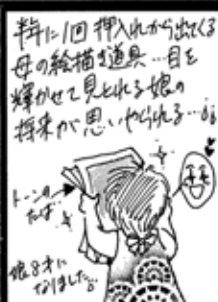 半年に1回押入れから出てくる
母の絵描き道具…目を
輝かせて見とれる娘の
将来が思いやられる…。
トーンの
たば…
娘8才に
なりました。